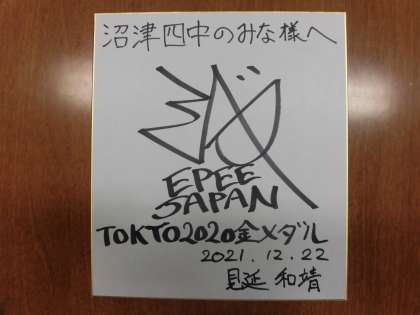 沼津四中のみな様へ
EPEE
JAPAN
TOKYO2020金メダル
2021.12.22
見延 和靖